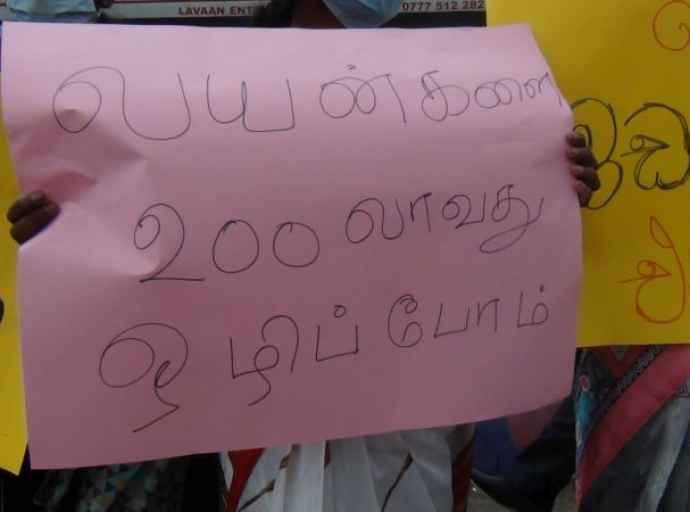 LAVAAN 0777 512 282
லயன்களை
200 லாவது
ஒழிப்போம்